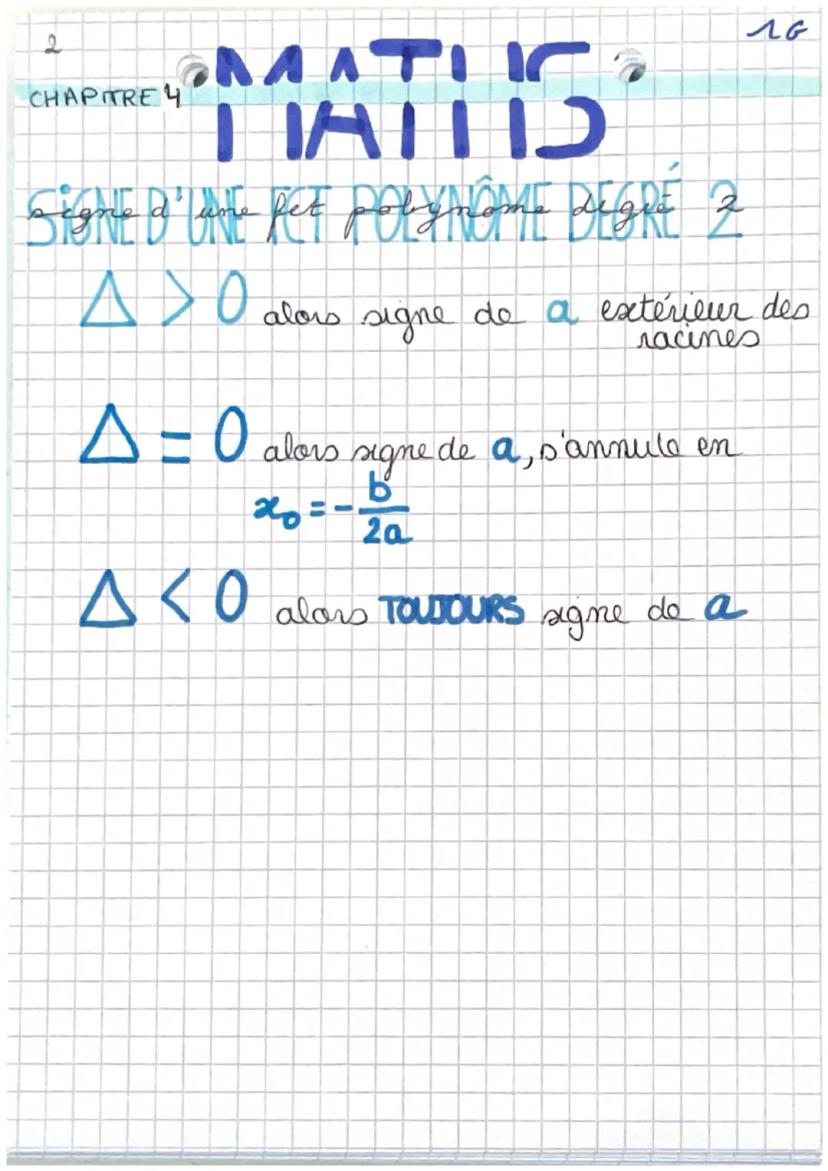 2
1G
MATHS
CHAPITRE 4
SIGNE D'UNE FCT POLYNÔME DEGRÉ 2
signe d'une fct polynôme degré 2
Δ > 0 alors signe de a extérieur des
racines
Δ = 0 alors signe de a, s'annule en
x₀ = - b/2a
Δ < 0 alors TOUJOURS signe de a